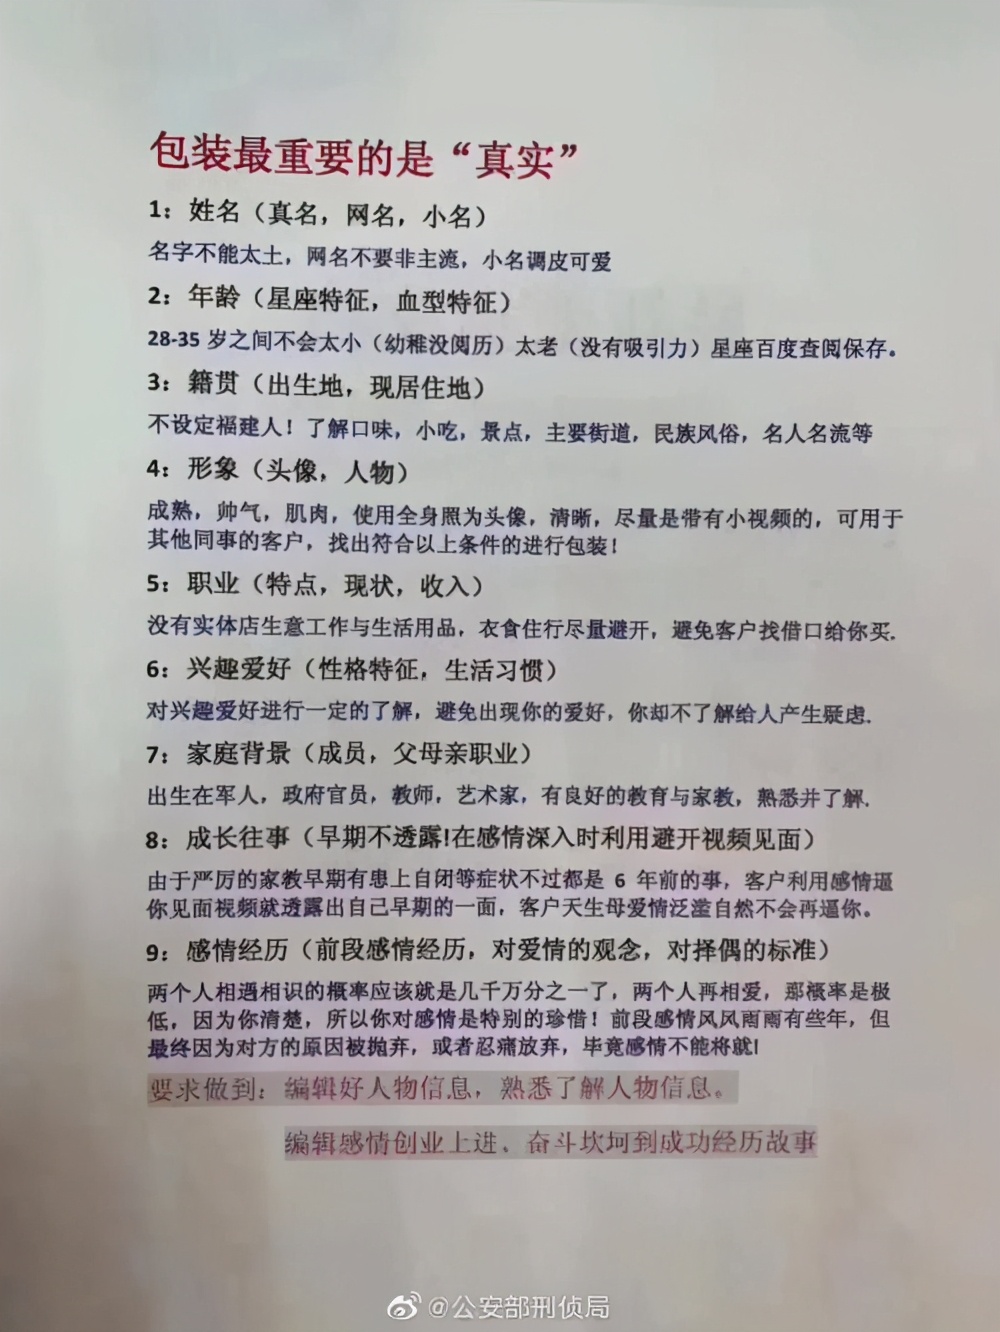 包装最重要的是“真实”
1：姓名（真名，网名，小名）
名字不能太土，网名不要非主流，小名调皮可爱
2：年龄（星座特征，血型特征）
28-35 岁之间不会太小（幼稚没阅历）太老（没有吸引力）星座百度查阅保存。
3：籍贯（出生地，现居住地）
不设定福建人！了解口味，小吃，景点，主要街道，民族风俗，名人名流等
4：形象（头像，人物）
成熟，帅气，肌肉，使用全身照为头像，清晰，尽量是带有小视频的，可用于
其他同事的客户，找出符合以上条件的进行包装！
5：职业（特点，现状，收入）
没有实体店生意工作与生活用品，衣食住行尽量避开，避免客户找借口给你买.
6：兴趣爱好（性格特征，生活习惯）
对兴趣爱好进行一定的了解，避免出现你的爱好，你却不了解给人产生疑虑.
7：家庭背景（成员，父母亲职业）
出生在军人，政府官员，教师，艺术家，有良好的教育与家教，熟悉并了解.
8：成长往事（早期不透露!在感情深入时利用避开视频见面）
由于严厉的家教早期有患上自闭等症状不过都是 6 年前的事，客户利用感情逼
你见面视频就透露出自己早期的一面，客户天生母爱情泛滥自然不会再逼你。
9：感情经历（前段感情经历，对爱情的观念，对择偶的标准）
两个人相遇相识的概率应该就是几千万分之一了，两个人再相爱，那概率是极
低，因为你清楚，所以你对感情是特别的珍惜！前段感情风风雨雨有些年，但
最终因为对方的原因被抛弃，或者忍痛放弃，毕竟感情不能将就!
要求做到：编辑好人物信息，熟悉了解人物信息。
编辑感情创业上进、奋斗坎坷到成功经历故事
@公安部刑侦局